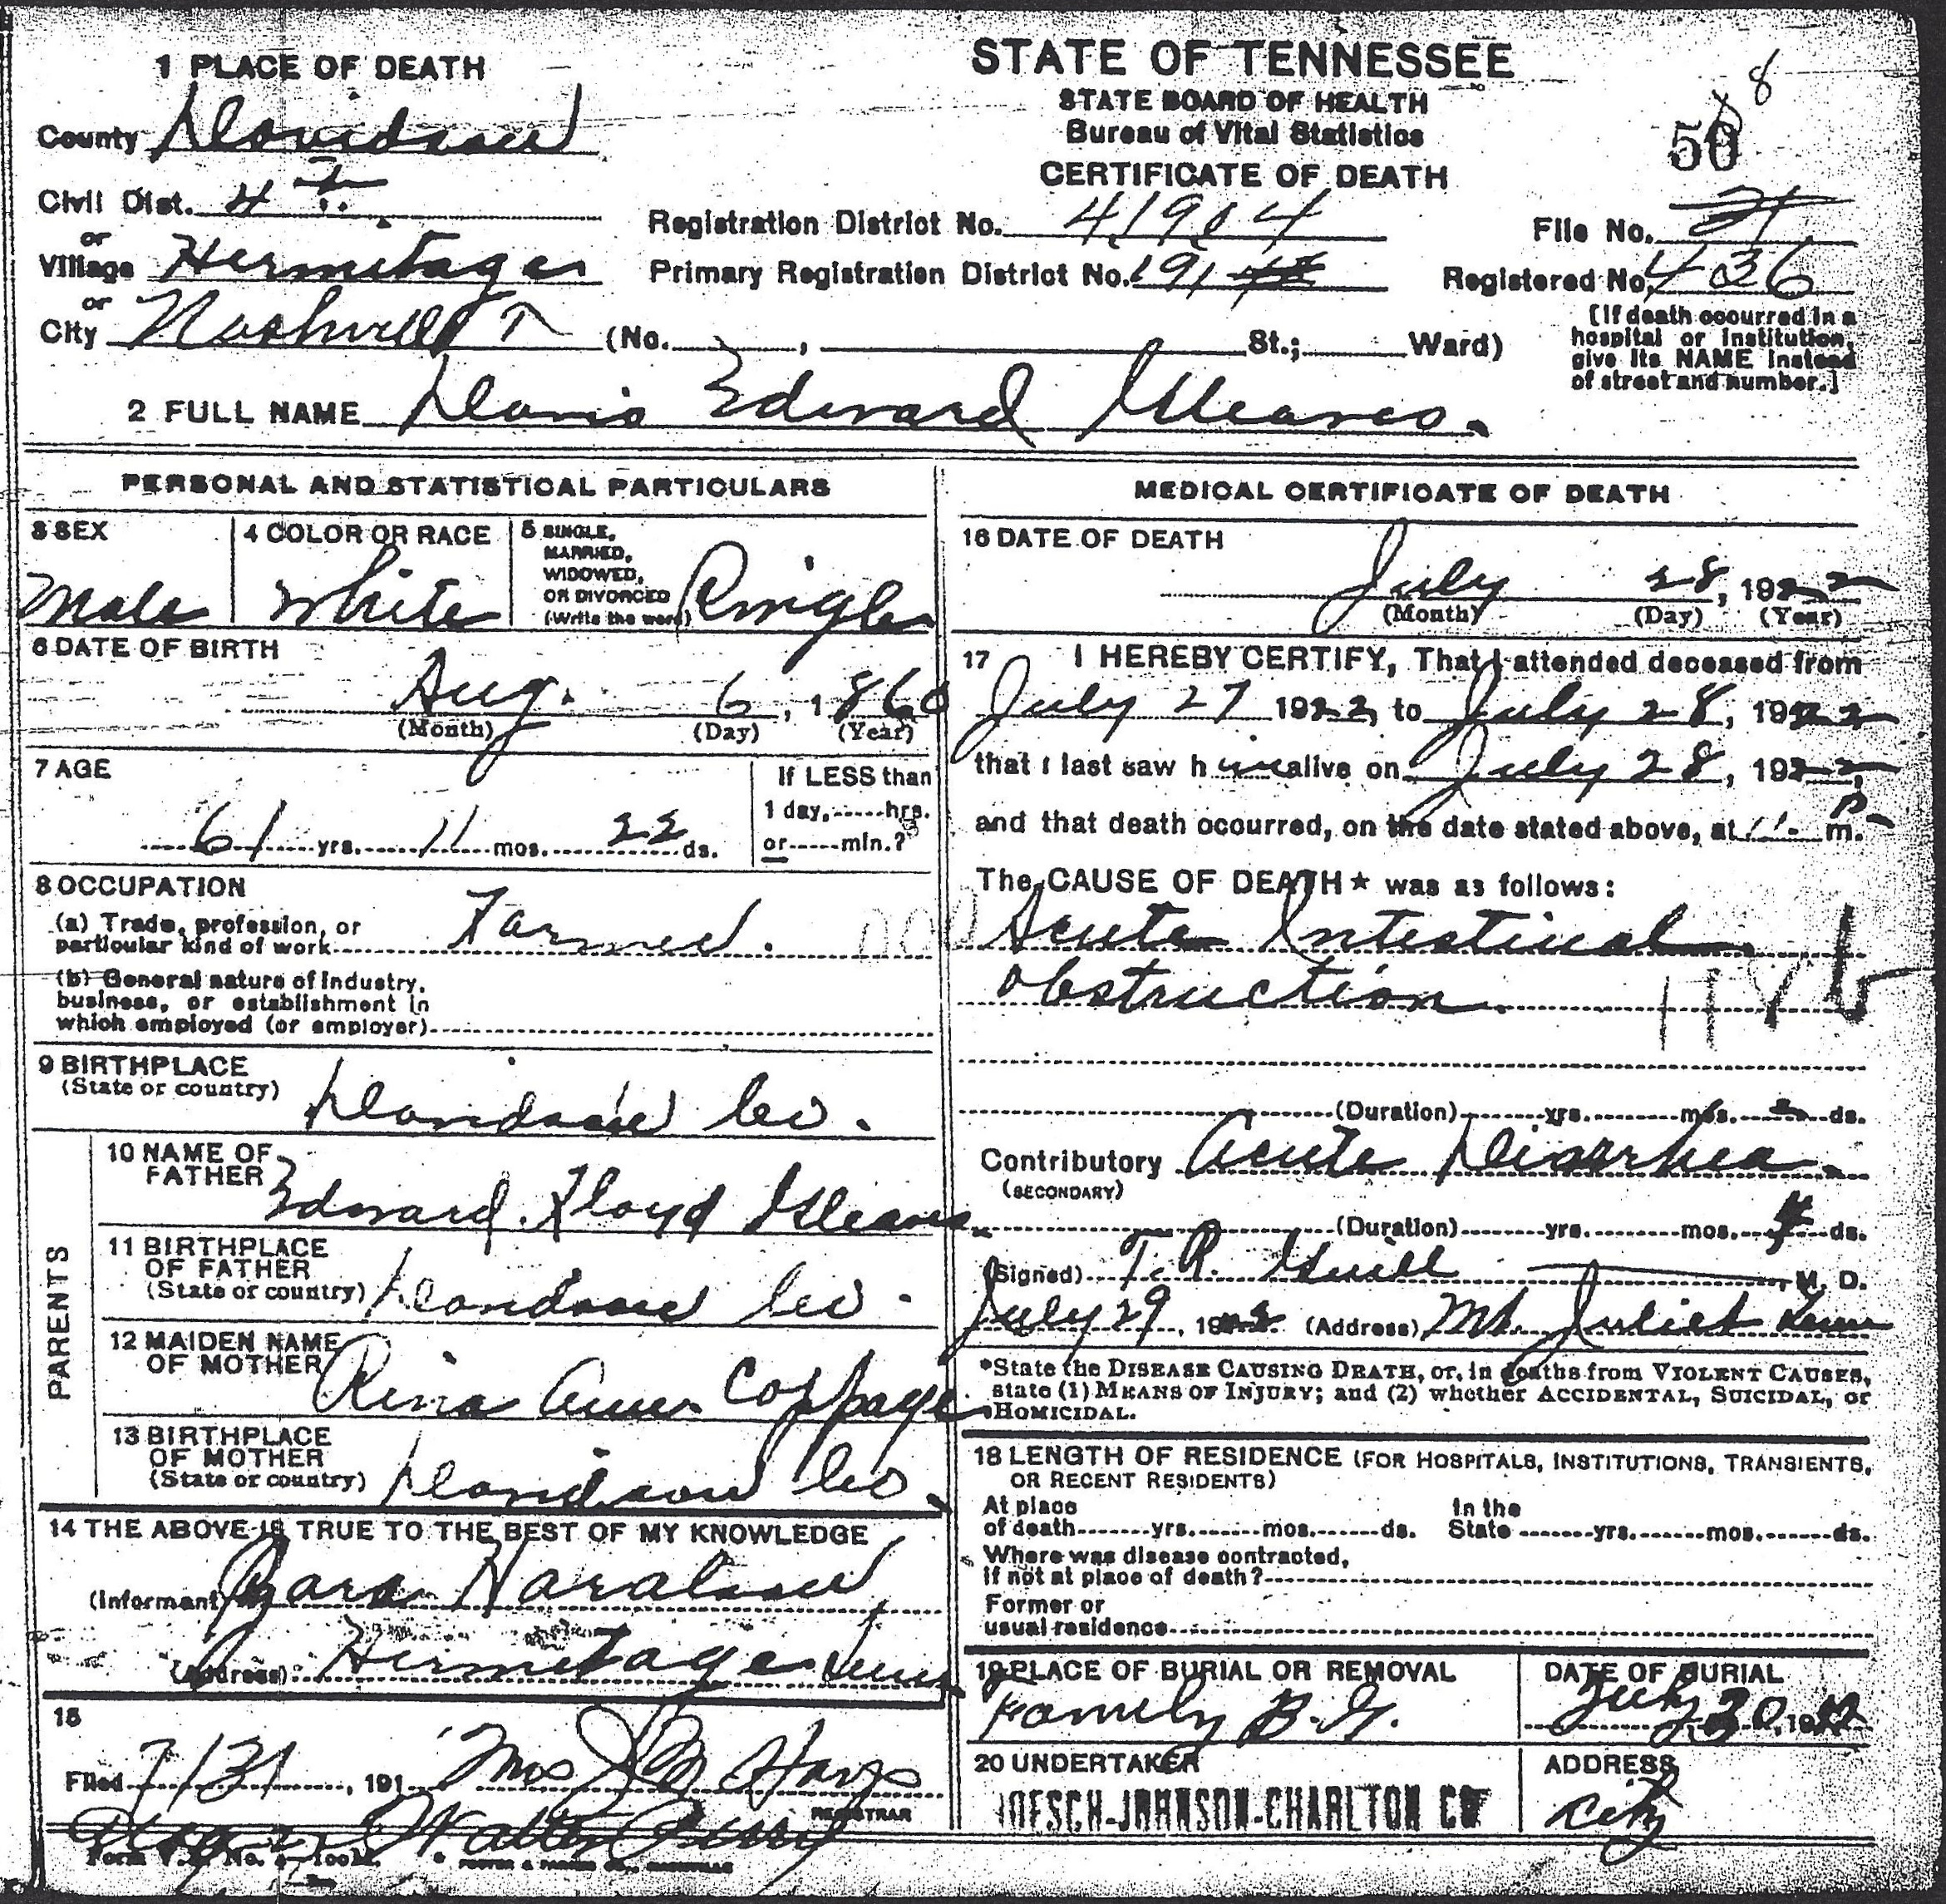 1 PLACE OF DEATH
County Davidson
Civil Dist. 4
or
Village Hermitage
or
City Nashville T (No. , St.; Ward)
STATE OF TENNESSEE
STATE BOARD OF HEALTH
Bureau of Vital Statistics
CERTIFICATE OF DEATH
8
50
Registration District No. 41904
File No.
Primary Registration District No. 191
Registered No. 436
[If death occurred in a
hospital or institution,
give its NAME instead
of street and number.]
2 FULL NAME Davis Edward Gleaves.
PERSONAL AND STATISTICAL PARTICULARS
3 SEX
Male
4 COLOR OR RACE
White
5 SINGLE,
MARRIED,
WIDOWED,
OR DIVORCED
(Write the word) Single
6 DATE OF BIRTH
Aug. 6, 1860
(Month) (Day) (Year)
7 AGE
61 yrs. 11 mos. 22 ds.
If LESS than
1 day, hrs.
or min.?
8 OCCUPATION
(a) Trade, profession, or
particular kind of work Farmer.
(b) General nature of industry,
business, or establishment in
which employed (or employer)
9 BIRTHPLACE
(State or country) Davidson Co.
PARENTS
10 NAME OF
FATHER Edward Floyd Gleaves
11 BIRTHPLACE
OF FATHER
(State or country) Davidson Co.
12 MAIDEN NAME
OF MOTHER Rina Ann Coppage
13 BIRTHPLACE
OF MOTHER
(State or country) Davidson Co.
14 THE ABOVE IS TRUE TO THE BEST OF MY KNOWLEDGE
(Informant) Haralson
(Address) Hermitage Tenn
15
Filed 7/31, 191 Mrs J M Hays
REGISTRAR
MEDICAL CERTIFICATE OF DEATH
16 DATE OF DEATH
July 28, 1922
(Month) (Day) (Year)
17 I HEREBY CERTIFY, That I attended deceased from
July 27 1922, to July 28, 1922
that I last saw him alive on July 28, 1922,
and that death occurred, on the date stated above, at 11 P m.
The CAUSE OF DEATH* was as follows:
Acute Intestinal
obstruction.
(Duration) yrs. mos. 2 ds.
Contributory Acute Disarrhea
(SECONDARY)
(Duration) yrs. mos. 4 ds.
(Signed) T. R. Guill, M. D.
July 29, 1922 (Address) Mt. Juliet Tenn
*State the DISEASE CAUSING DEATH, or, in deaths from VIOLENT CAUSES,
state (1) MEANS OF INJURY; and (2) whether ACCIDENTAL, SUICIDAL, or
HOMICIDAL.
18 LENGTH OF RESIDENCE (FOR HOSPITALS, INSTITUTIONS, TRANSIENTS,
OR RECENT RESIDENTS)
At place
of death yrs. mos. ds. In the
State yrs. mos. ds.
Where was disease contracted,
if not at place of death?
Former or
usual residence
19 PLACE OF BURIAL OR REMOVAL
Family B. G.
DATE OF BURIAL
July 30, 1922
20 UNDERTAKER
JOHNSON-CHARLTON CO
ADDRESS
City